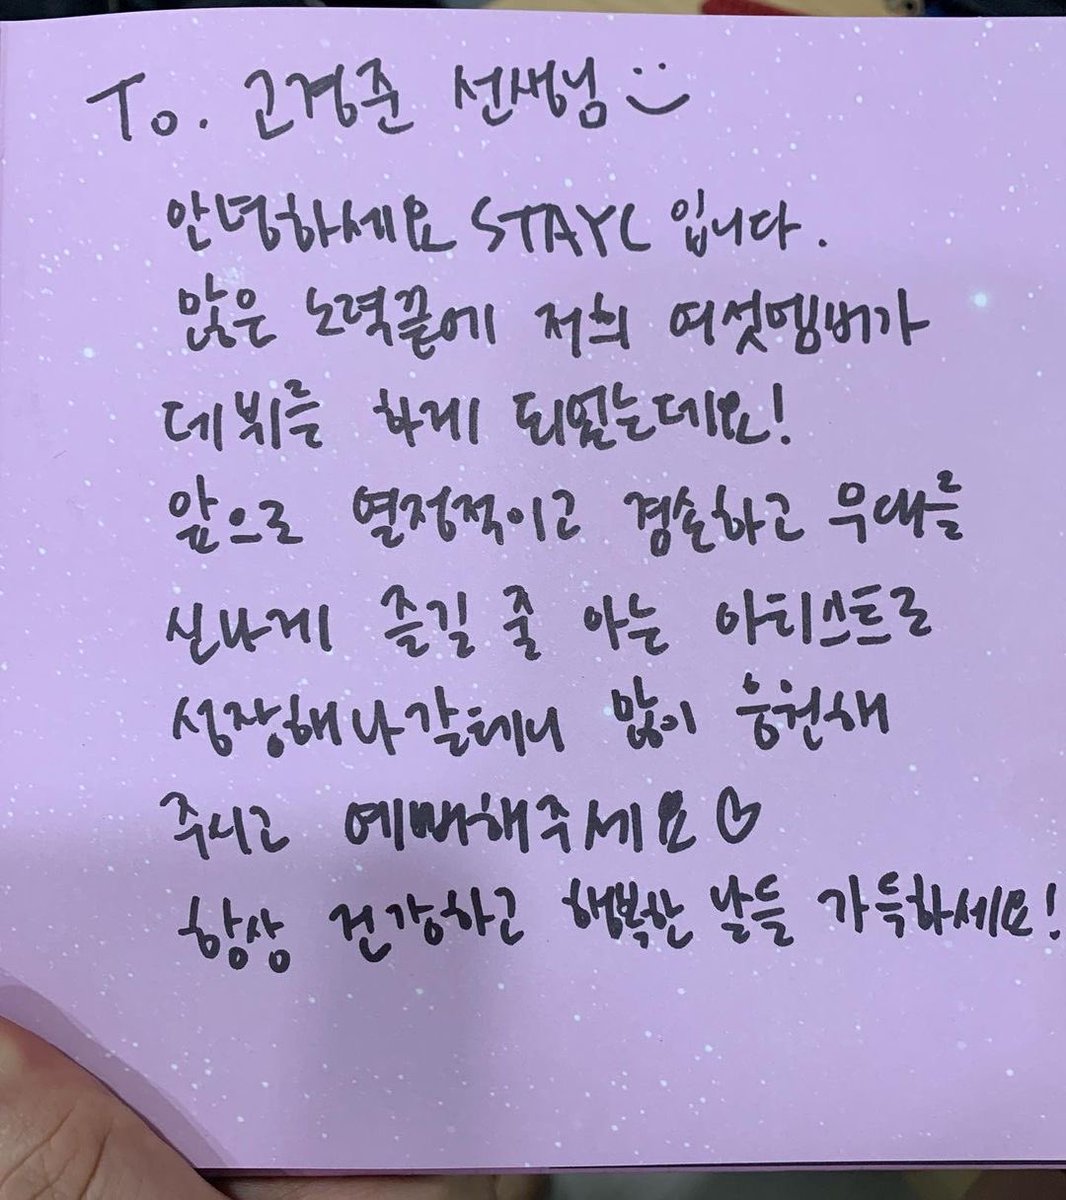 To. 고경준 선생님
안녕하세요 STAYC 입니다.
많은 노력끝에 저희 여섯멤버가
데뷔를 하게 되었는데요!
앞으로 열정적이고 겸손하고 무대를
신나게 즐길 줄 아는 아티스트로
성장해나갈테니 많이 응원해
주시고 예뻐해주세요♡
항상 건강하고 행복한 날들 가득하세요!